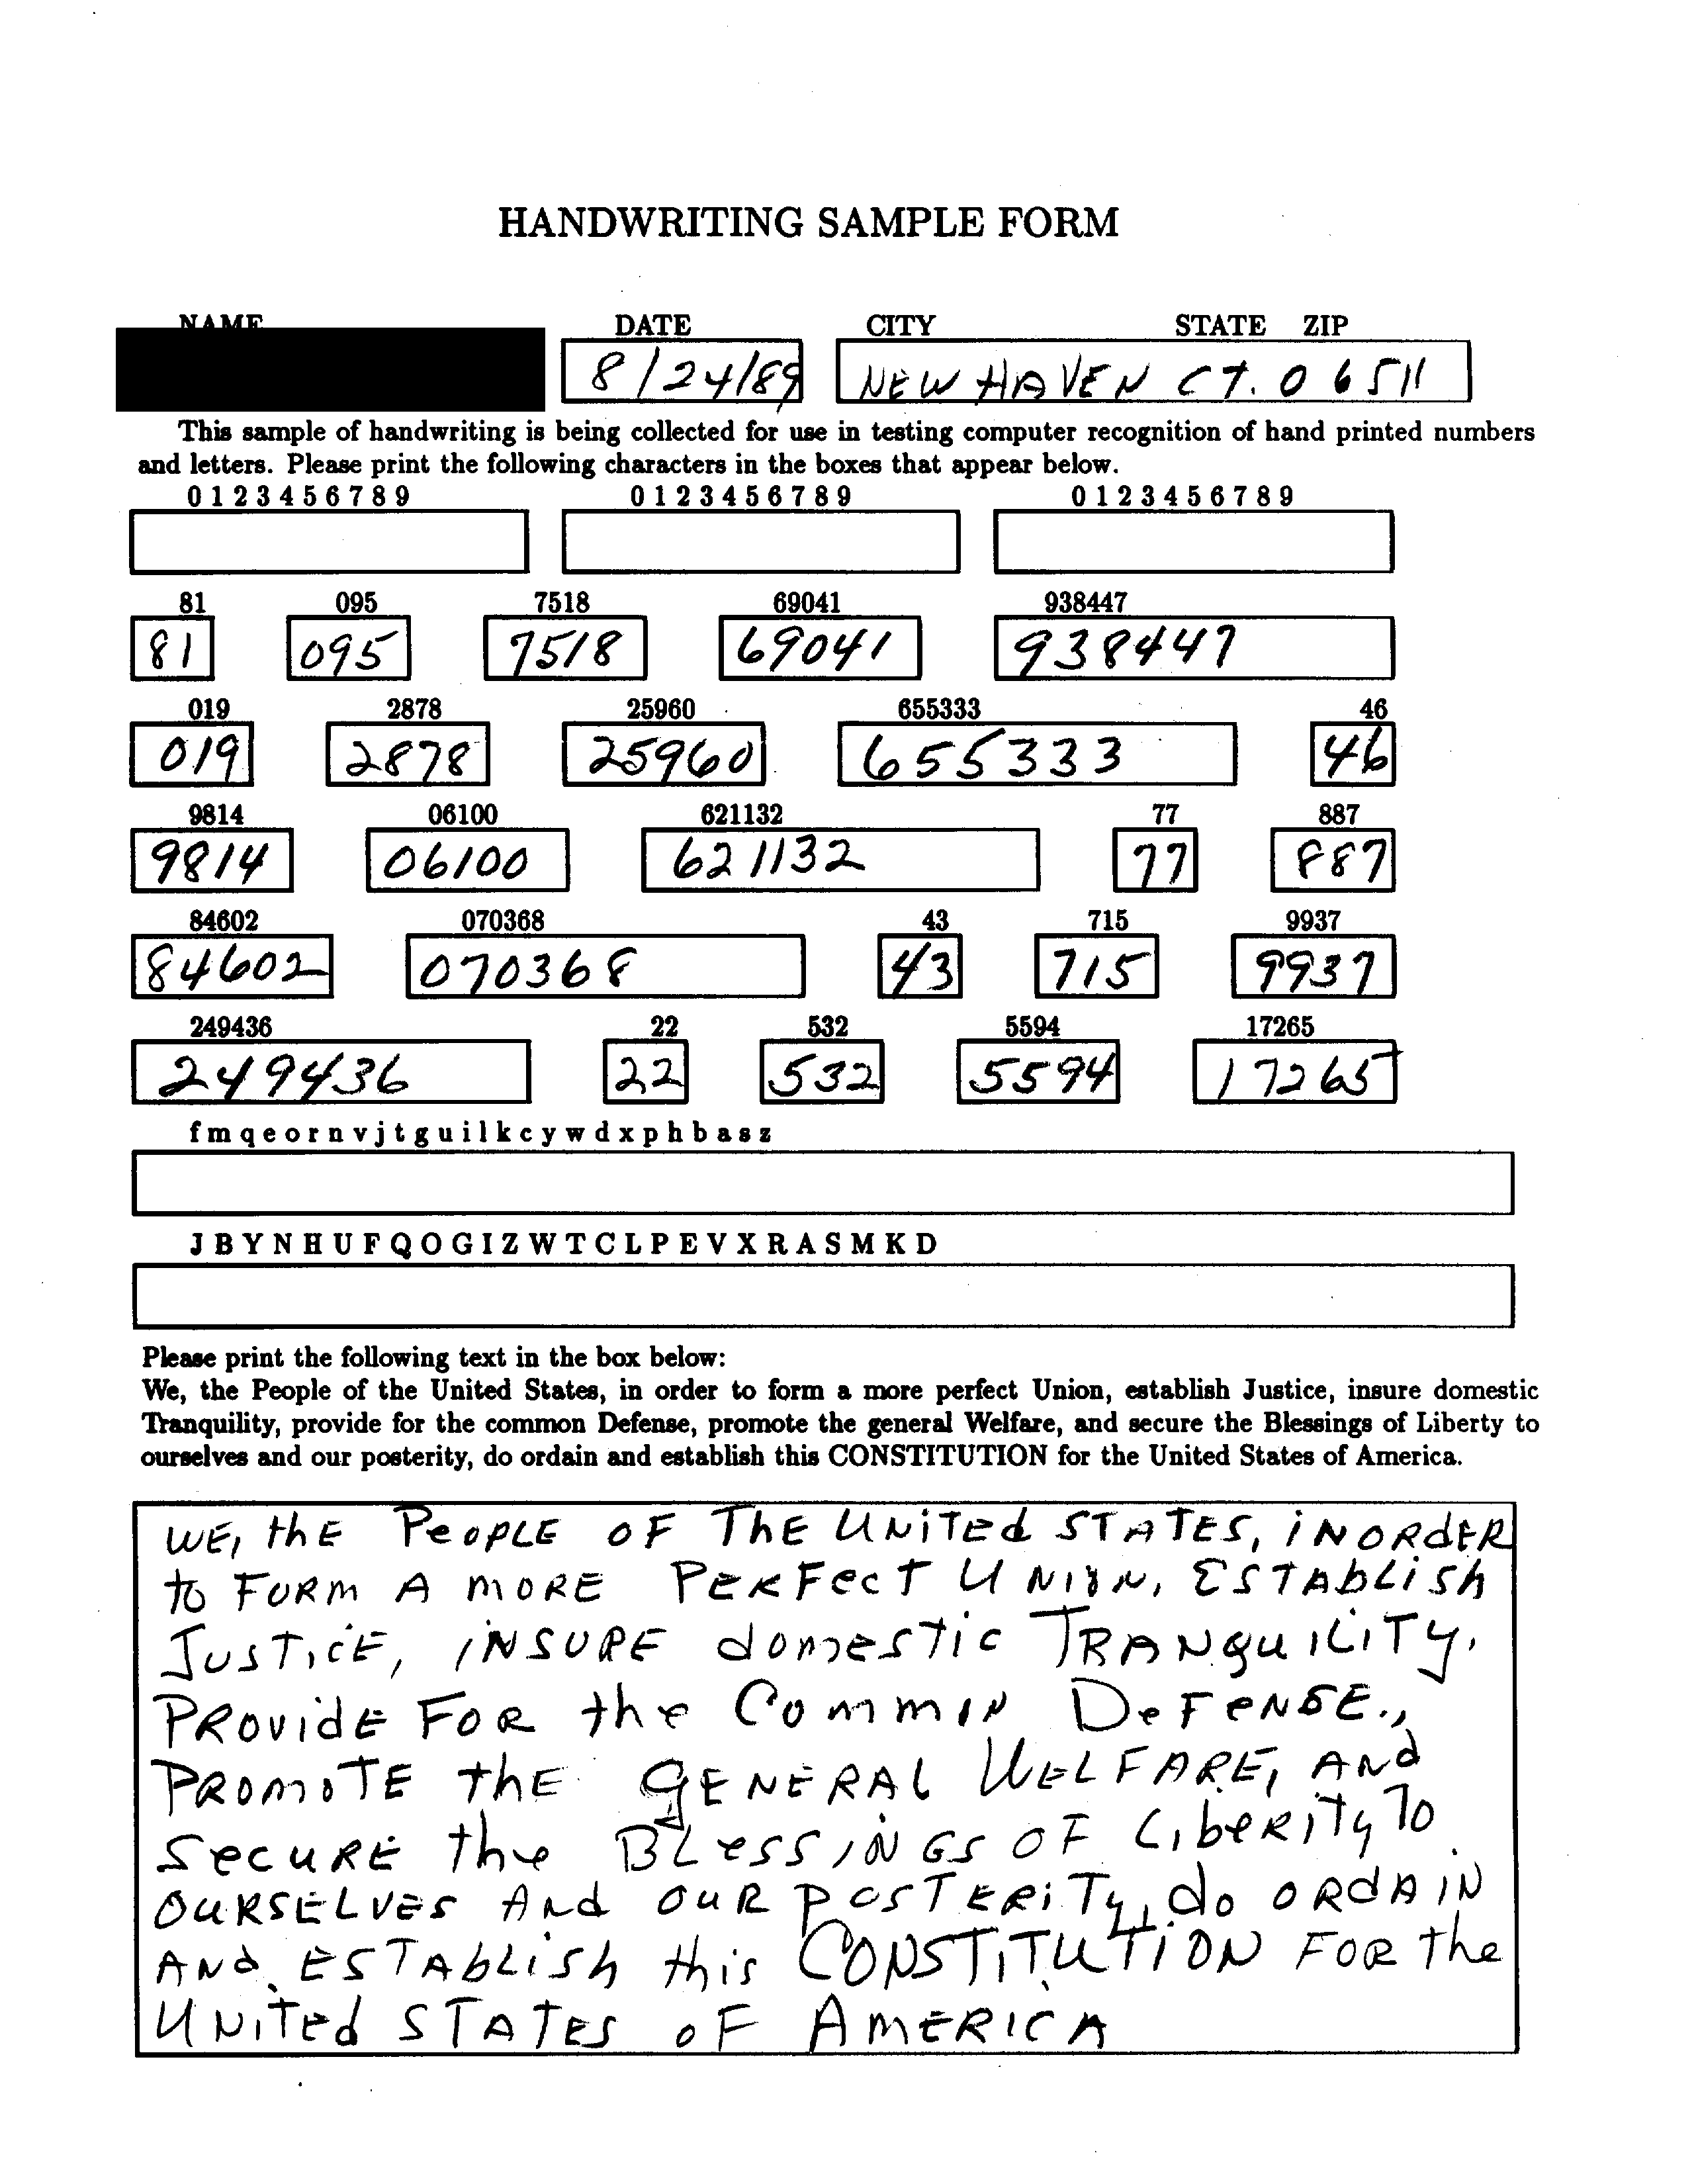 HANDWRITING SAMPLE FORM
NAME DATE CITY STATE ZIP
8/24/89 NEW HAVEN CT. 06511
This sample of handwriting is being collected for use in testing computer recognition of hand printed numbers
and letters. Please print the following characters in the boxes that appear below.
0 1 2 3 4 5 6 7 8 9 0 1 2 3 4 5 6 7 8 9 0 1 2 3 4 5 6 7 8 9
81 095 7518 69041 938447
81 095 7518 69041 938447
019 2878 25960 655333 46
019 2878 25960 655333 46
9814 06100 621132 77 887
9814 06100 621132 77 887
84602 070368 43 715 9937
84602 070368 43 715 9937
249436 22 532 5594 17265
249436 22 532 5594 17265
f m q e o r n v j t g u i l k c y w d x p h b a s z
J B Y N H U F Q O G I Z W T C L P E V X R A S M K D
Please print the following text in the box below:
We, the People of the United States, in order to form a more perfect Union, establish Justice, insure domestic
Tranquility, provide for the common Defense, promote the general Welfare, and secure the Blessings of Liberty to
ourselves and our posterity, do ordain and establish this CONSTITUTION for the United States of America.
WE, thE PeoPLE OF ThE UNiTed STATES, iN ORdER
to FORM A MORE PERFecT UNION, ESTAbLish
JUSTicE, iNSURE domesTic TRANquiLiTy,
PROvidE FOR the CommIN DeFeNSE.,
PROMOTE thE GENERAL WELFARE, ANd
SecuRE the BLessINGS OF LibeRiTy To
OURSELVES ANd OUR POSTERiTy, do ORdAIN
ANd ESTAbLish this CONSTITUTiON FOR the
UNiTed STATES oF AMERICA